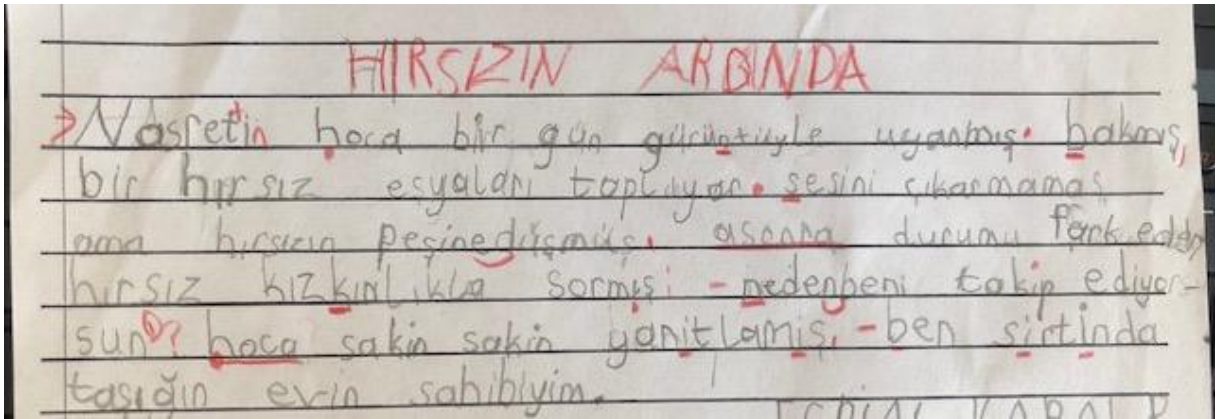 HIRSIZIN ARDINDA
Nasretdin hoca bir gün gürüntüyle uyanmış. bakmış,
bir hırsız eşyaları topluyor. sesini çıkarmamaş
ama hırsızın peşinedüşmüş. asonra durumu fark eden
hırsız kızkınlıkla sormış: - nedenbeni takip ediyor-
sun? hoca sakin sakin yanitlamiş. - ben sirtinda
taşığın evin sahibiyim.